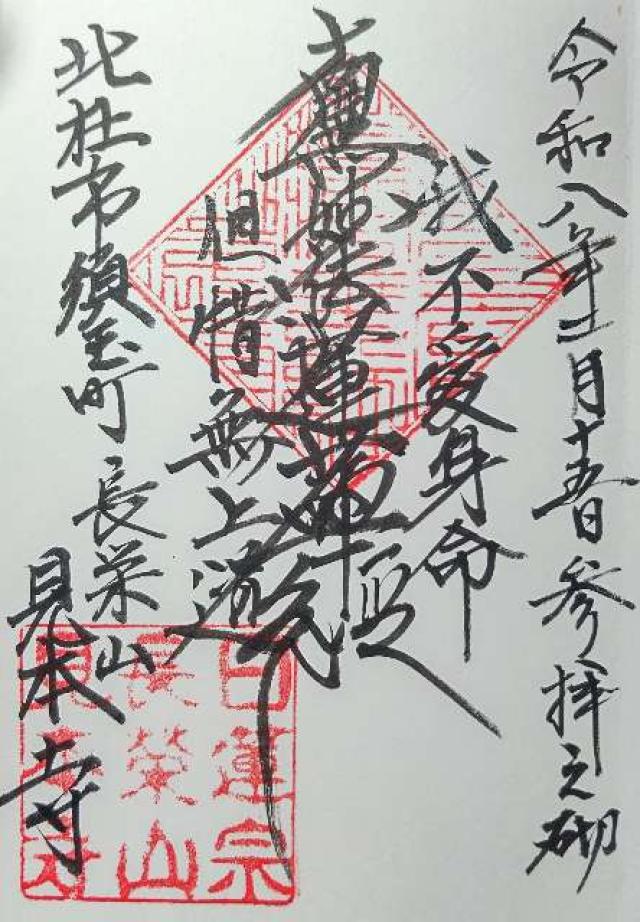 令和八年二月十五日参拝之砌
我不愛身命
南無妙法蓮華経
但惜無上道
北杜市須玉町
長栄山
見本寺
日蓮宗
長榮山
見本寺